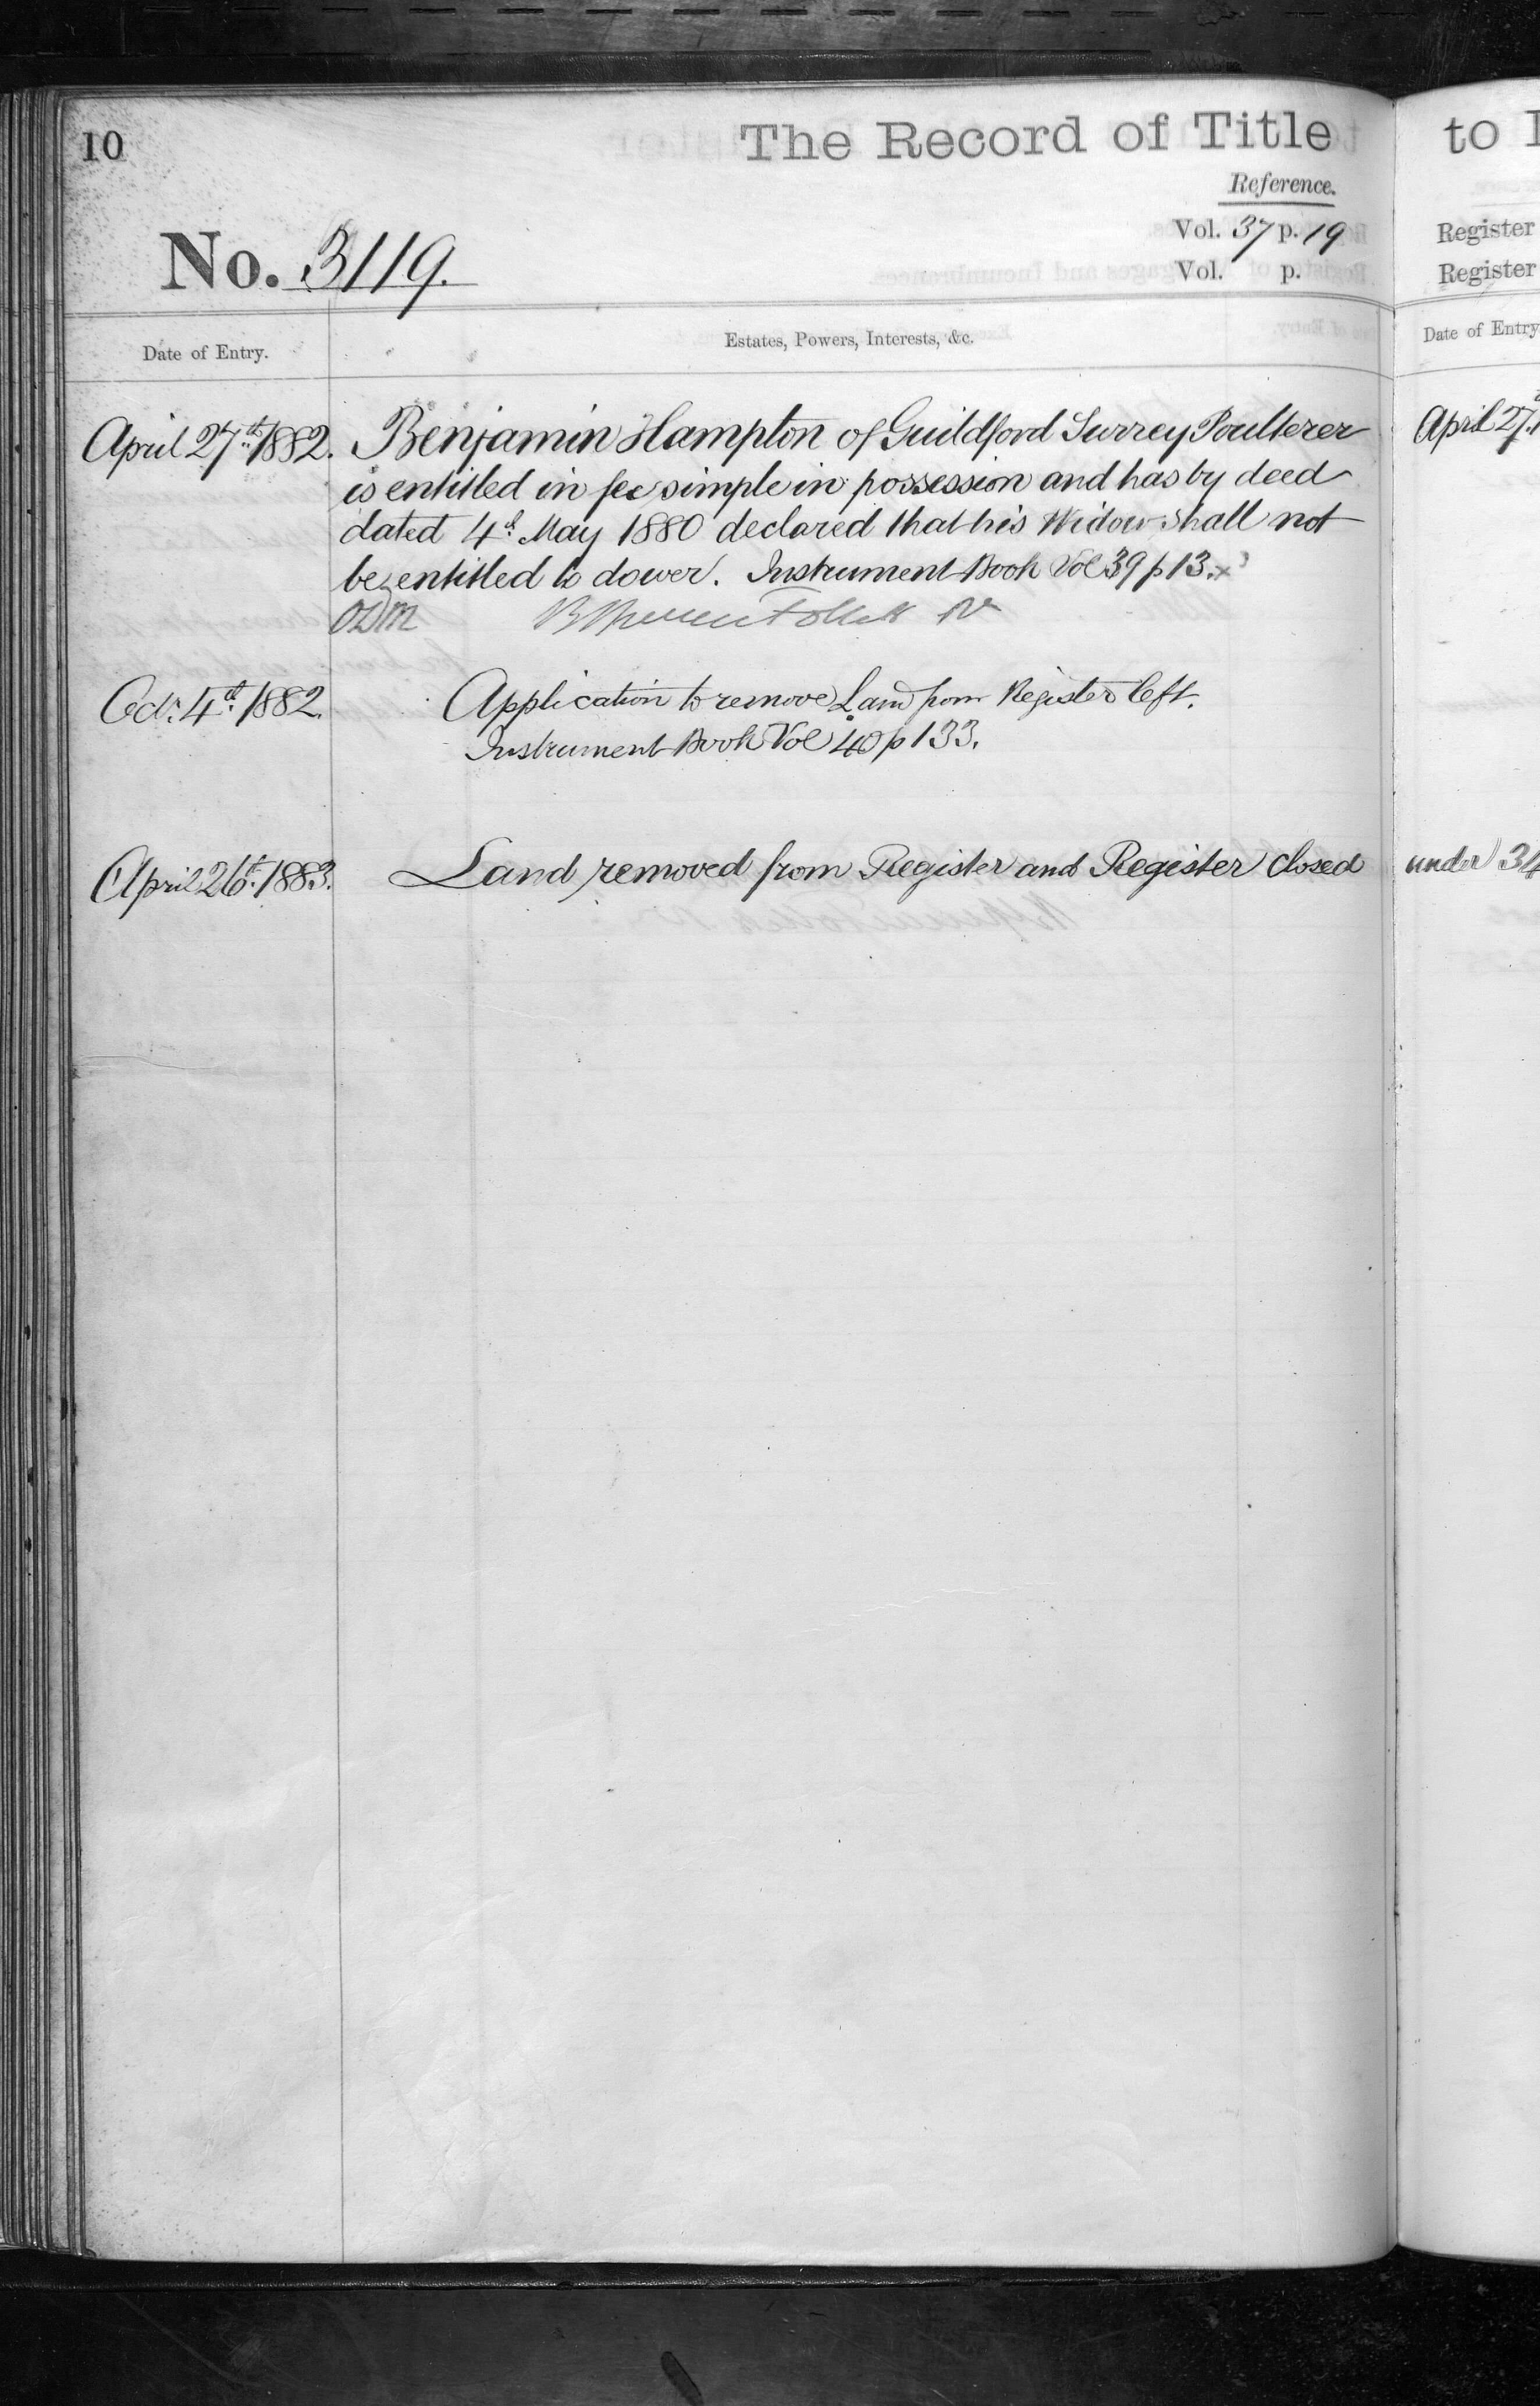 10
The Record of Title
Reference.
No. 3119.
Vol. 37 p. 19
Vol. p.
Date of Entry.
Estates, Powers, Interests, &c.
April 27th 1882. Benjamin Hampton of Guildford Surrey Poulterer
is entitled in fee simple in possession and has by deed
dated 4th May 1880 declared that his Widow shall not
be entitled to dower. Instrument Book Vol 39 p 13.x
Oct. 4th 1882. Application to remove Land from Register left.
Instrument Book Vol 40 p 133.
April 26th 1883. Land removed from Register and Register closed
to
Register
Register
Date of Entry
April 27.
under 34